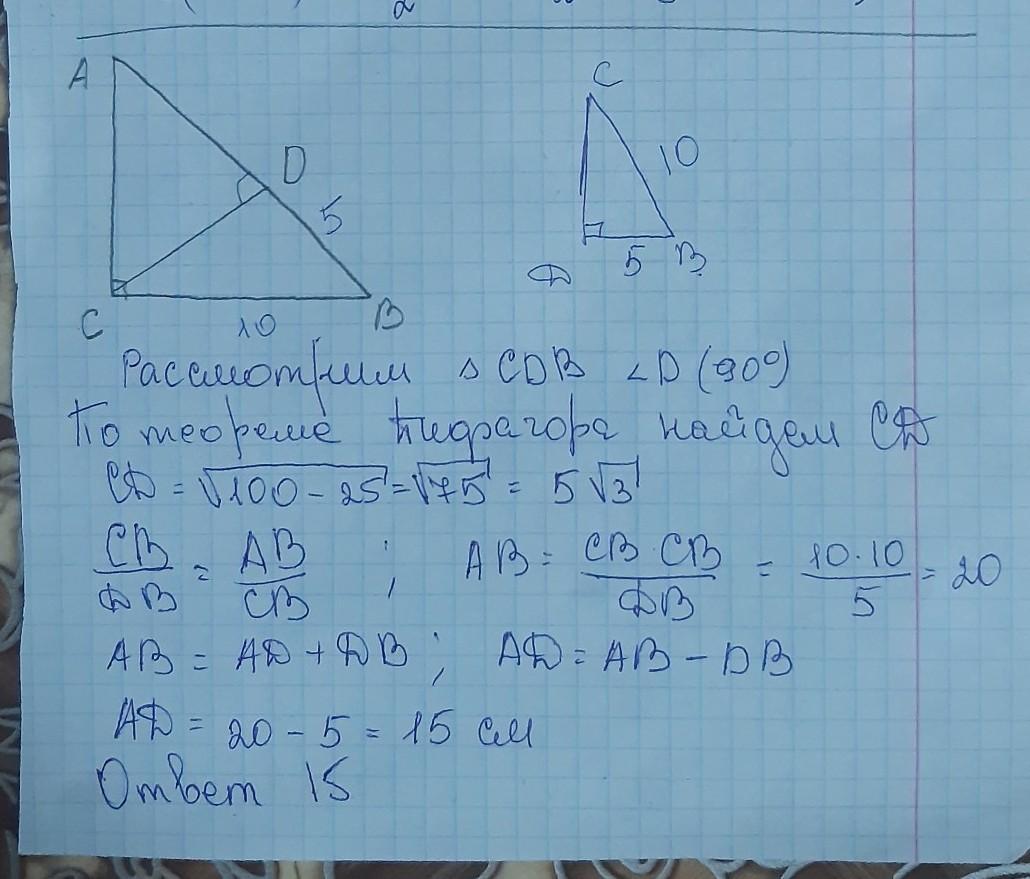 A
D
5
C
10
B
C
10
5
B
D
Рассмотрим △ CDB ∠D (90°)
По теореме Пифагора найдем CD
CD = √100 - 25 = √75 = 5√3
CB/DB = AB/CB ; AB = CB·CB/DB = 10·10/5 = 20
AB = AD + DB ; AD = AB - DB
AD = 20 - 5 = 15 см
Ответ 15